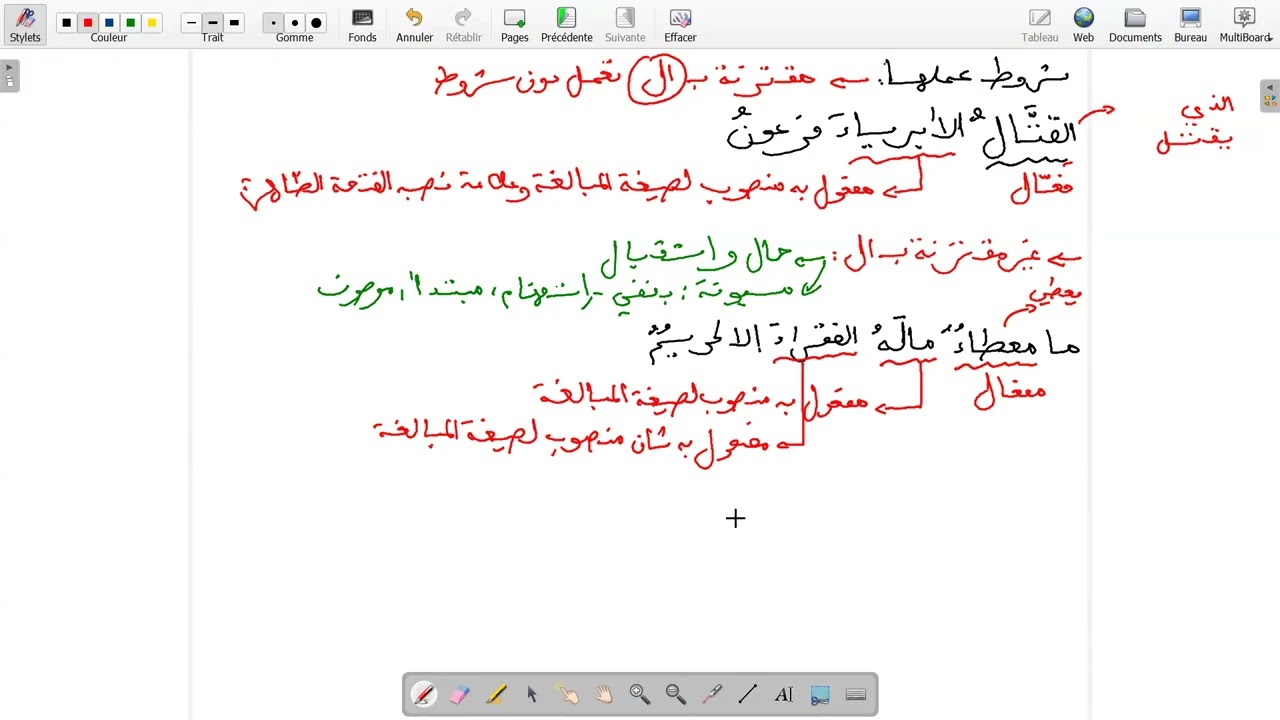 Stylets Couleur Trait Gomme Fonds Annuler Rétablir Pages Précédente Suivante Effacer Tableau Web Documents Bureau MultiBoard
شروط عملها: مقترنة بـ ال تعمل دون شروط
القتَّالُ الأبرياءَ فرعونُ
الذي
يقتل
فعّال
مفعول به منصوب لصيغة المبالغة وعلامة نصبه الفتحة الظاهرة
غير مقترنة بـ ال: حال و استقبال
مسبوقة: بنفي - استفهام، مبتدأ، موصوف
يعطي
ما معطاءٌ مالَهُ الفقراءَ إلا الكريمُ
مفعال
مفعول به منصوب لصيغة المبالغة
مفعول به ثان منصوب لصيغة المبالغة
AI